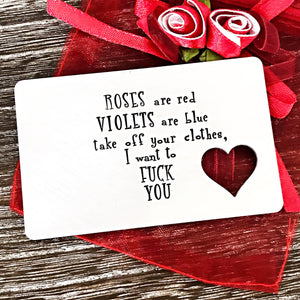 ROSES are red
VIOLETS are blue
take off your clothes,
I want to
FUCK
YOU